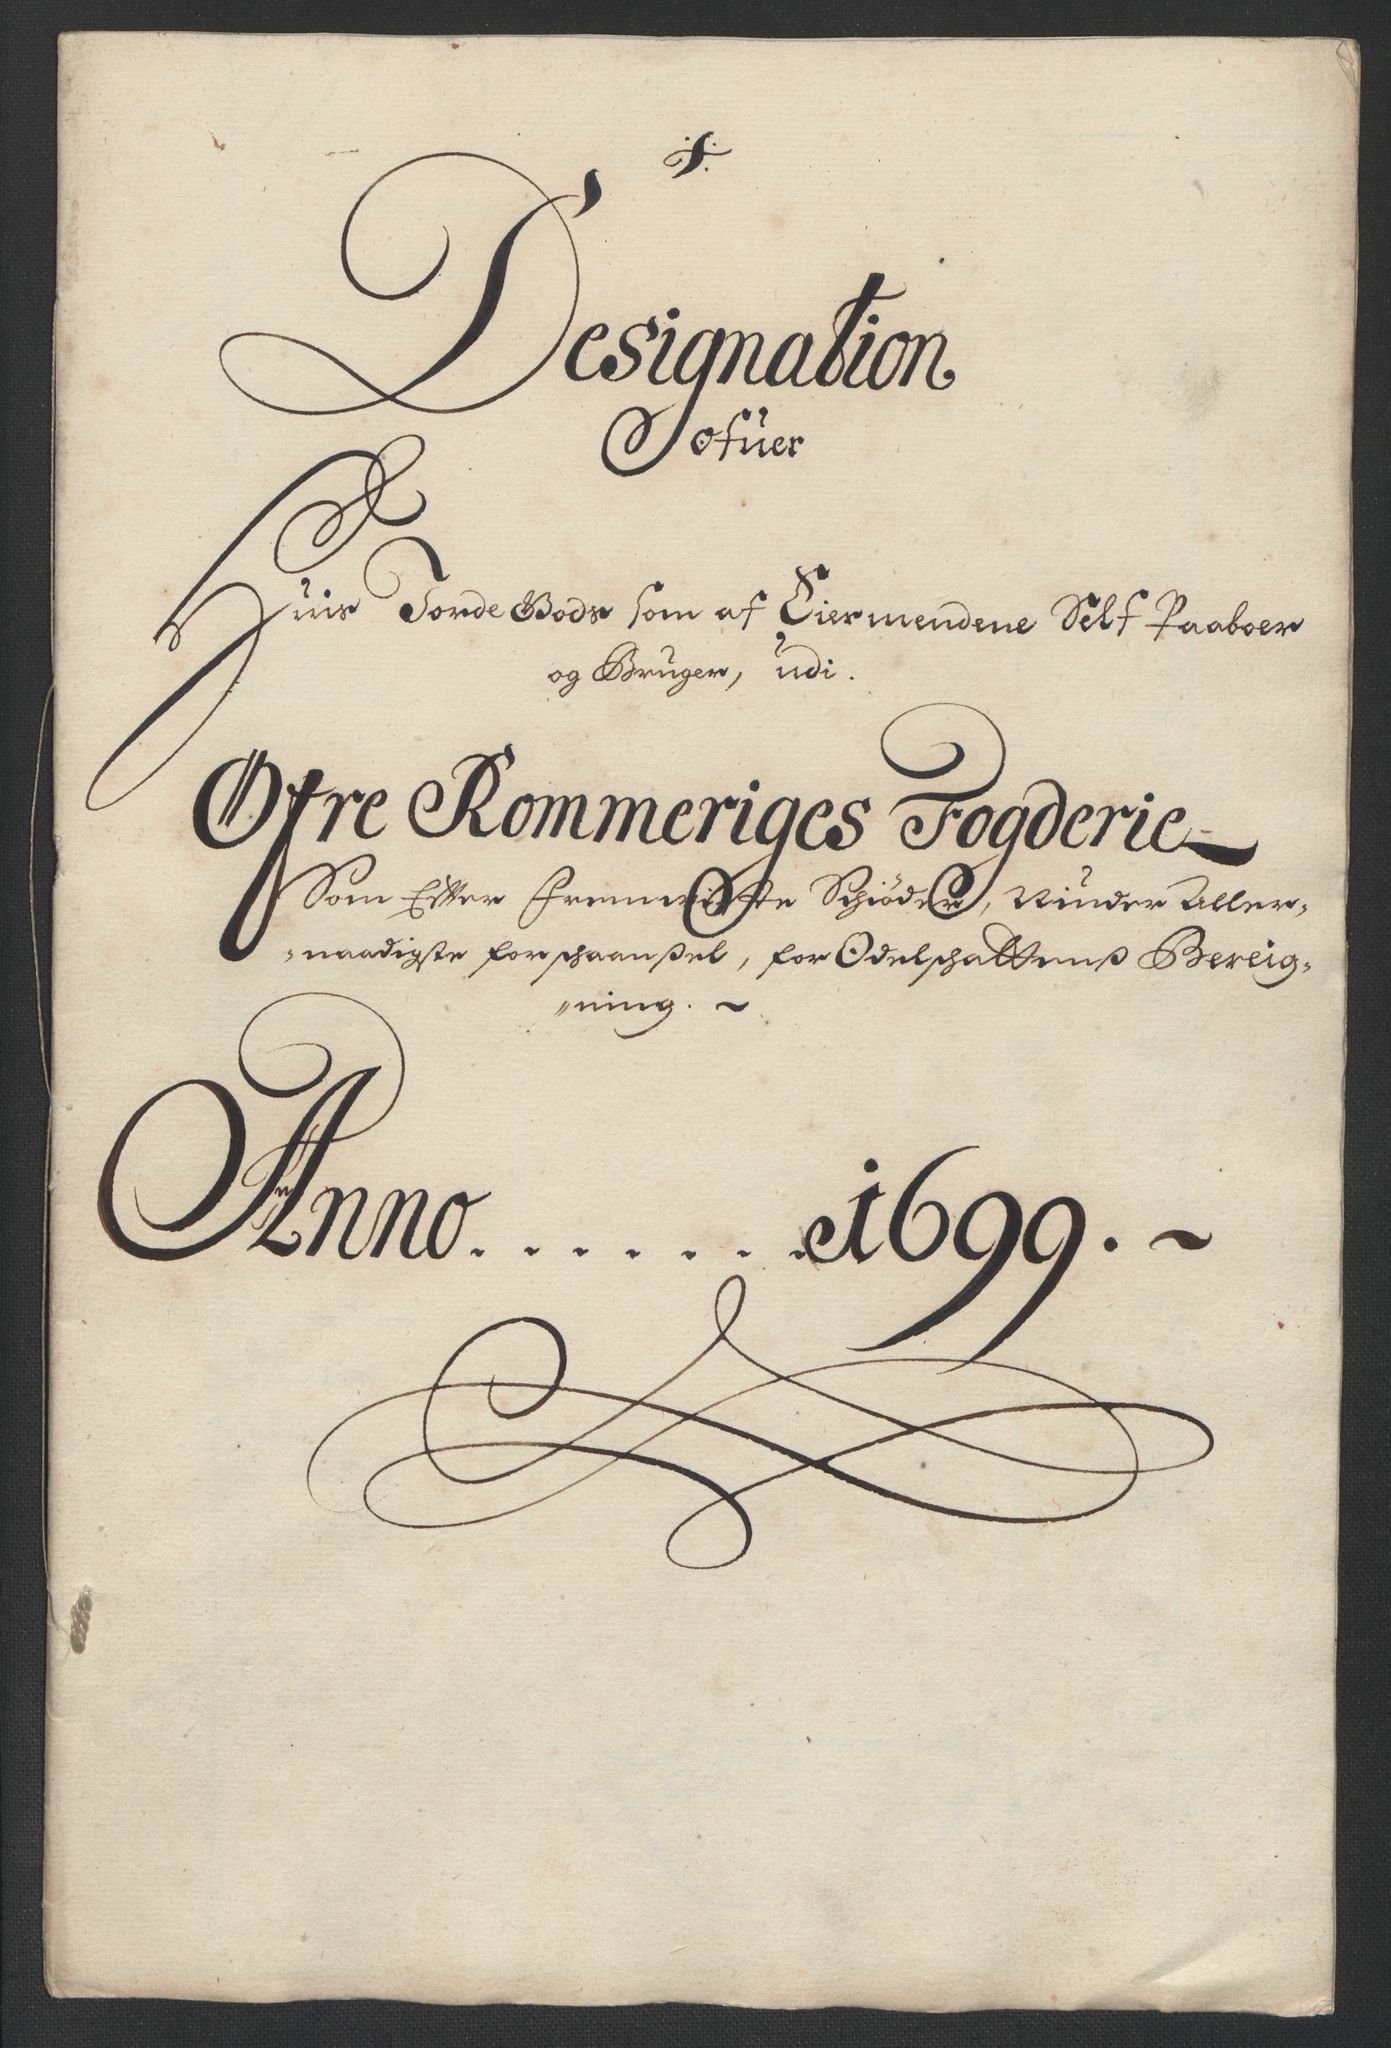 Designation
ofüer
Huis Jorde Gods som af Eiermendene Self Paaboer
og Bruger, udi.
Øfre Rommeriges Fogderie
Som Efter Fremviiste Schiøder, Niuder Aller-
naadigste forschaanßel, for Odelschattenß Bereig-
ning.
Anno . . . . . . . 1699.